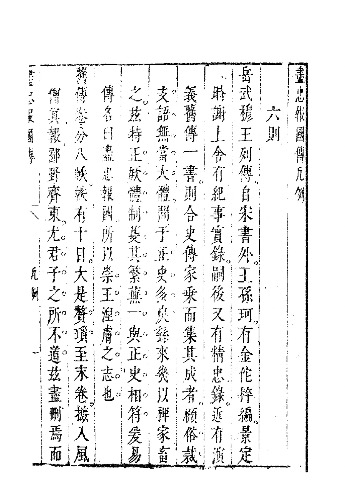 盡忠報國傳凡例
六則
岳武穆王列傳自宋書外王孫珂有金佗稡編景定
時謝上令有紀事實錄嗣後又有精忠錄近有演
義舊傳一書則合史傳家乘而集其成者顧俗裁
支語無當大體間于正史多戾繇來幾以稗家畜
之茲特正厥體制芟其繁蕪一與正史相符爰易
傳名曰盡忠報國所以崇王涅膚之志也
舊傳卷分八帙帙有十目大是贅項至末卷摭入風
僧冥報鄙野齊東尤君子之所不道茲盡刪焉而
盡忠報國傳
凡例
一